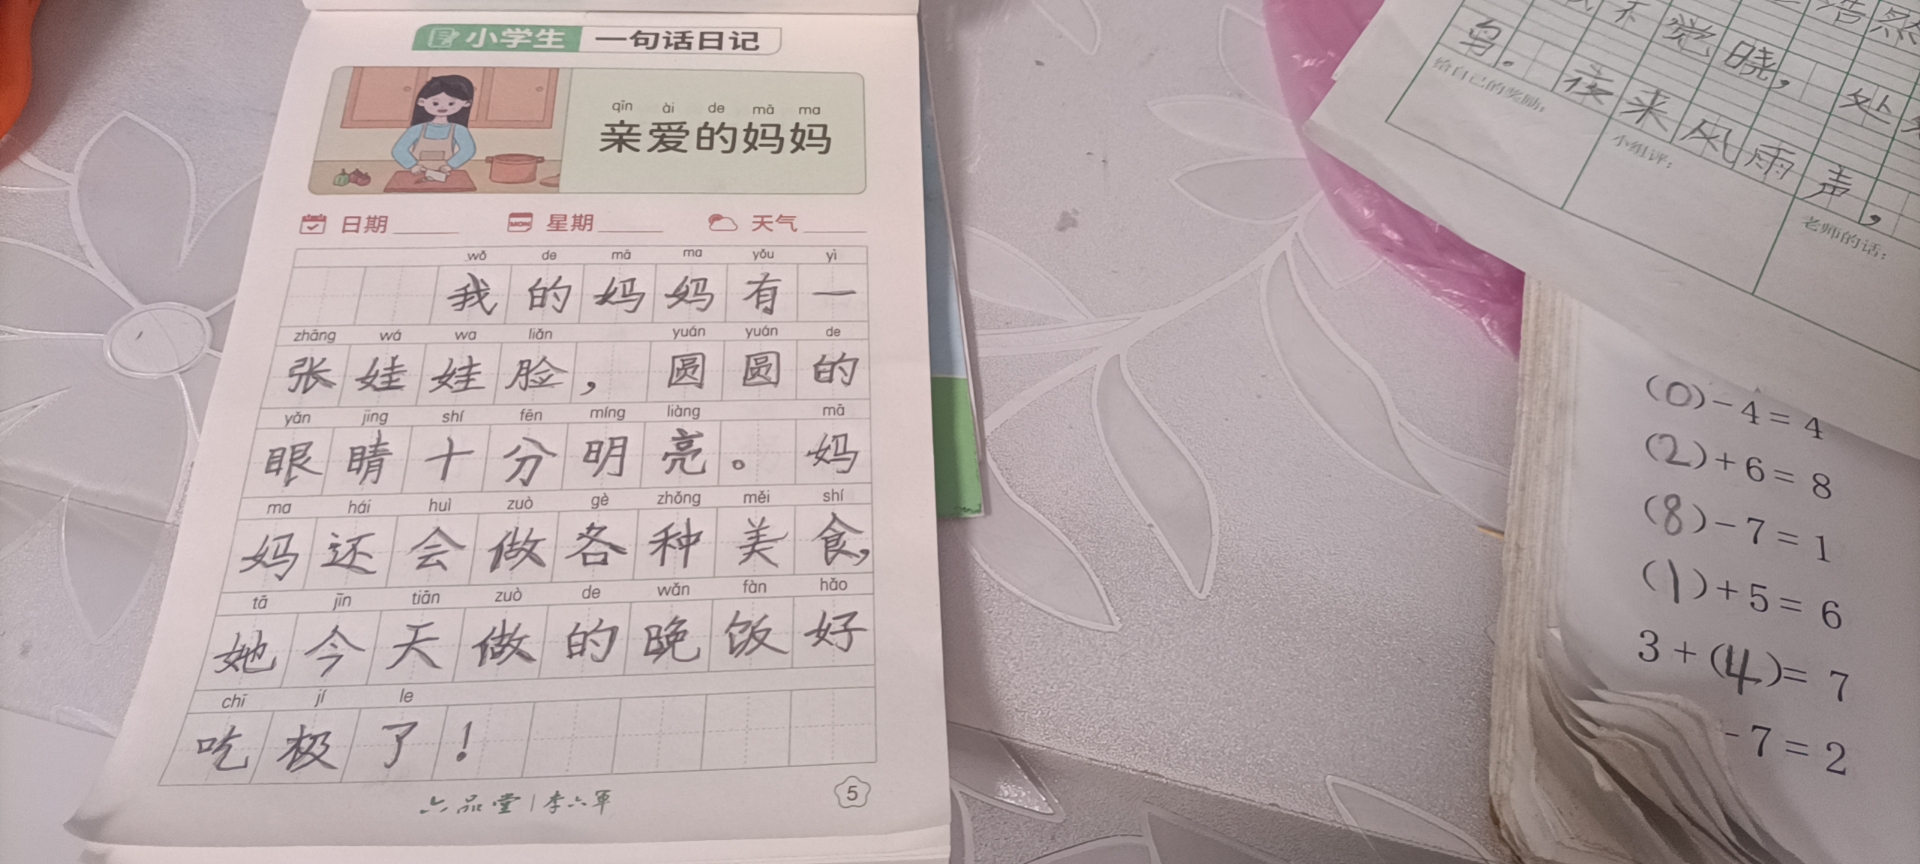 小学生 一句话日记
qīn ài de mā ma
亲爱的妈妈
日期 星期 天气
wǒ de mā ma yǒu yì
我的妈妈有一
zhāng wá wa liǎn yuán yuán de
张娃娃脸，圆圆的
yǎn jing shí fēn míng liàng mā
眼睛十分明亮。妈
ma hái huì zuò gè zhǒng měi shí
妈还会做各种美食，
tā jīn tiān zuò de wǎn fàn hǎo
她今天做的晚饭好
chī jí le
吃极了！
六品堂 | 李六军
5
浩然
不觉晓，处
鸟。夜来风雨声，
给自己的奖励：
小组评：
老师的话：
(0)-4=4
(2)+6=8
(8)-7=1
(1)+5=6
3+(4)=7
-7=2